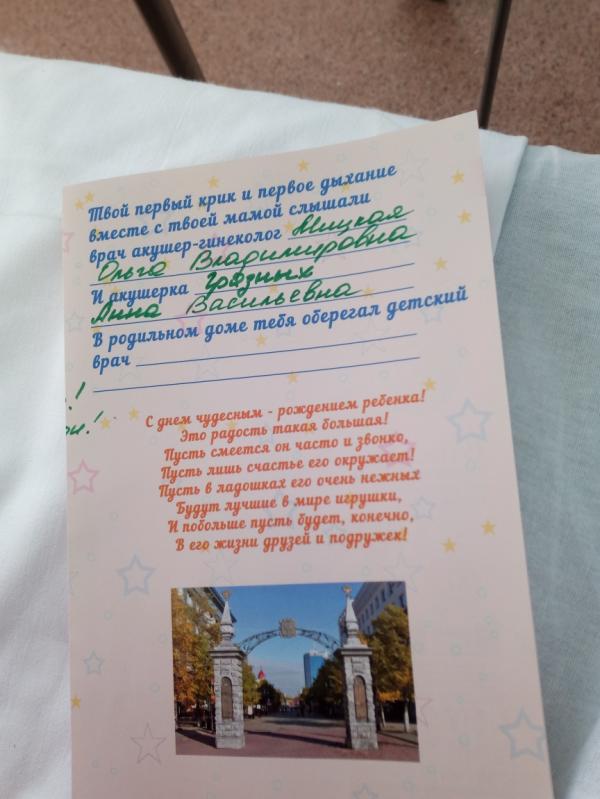 Твой первый крик и первое дыхание
вместе с твоей мамой слышали
врач акушер-гинеколог Жицкая
Ольга Владимировна
И акушерка Грязных
Анна Васильевна
В родильном доме тебя оберегал детский
врач
!
ри!
С днем чудесным - рождением ребенка!
Это радость такая большая!
Пусть смеется он часто и звонко,
Пусть лишь счастье его окружает!
Пусть в ладошках его очень нежных
Будут лучшие в мире игрушки,
И побольше пусть будет, конечно,
В его жизни друзей и подружек!